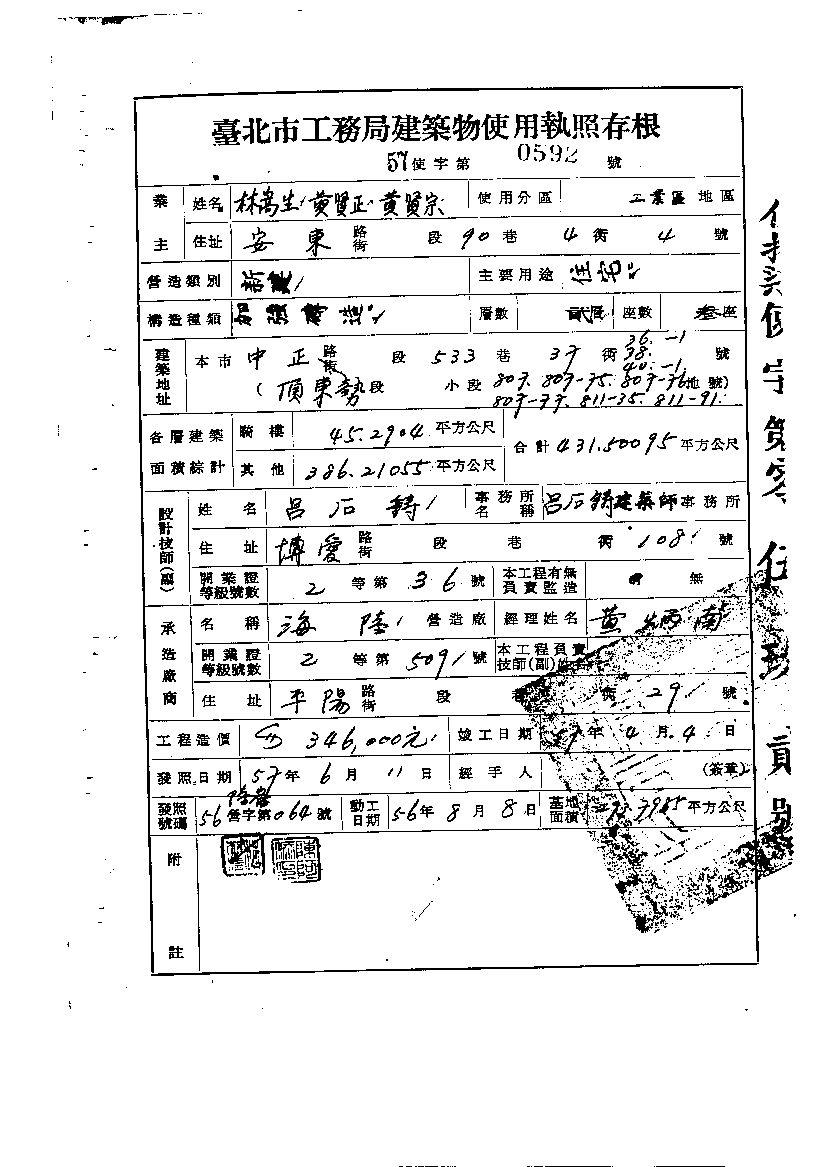 臺北市工務局建築物使用執照存根
57使字第 0592 號
業主 姓名 林萬生 黄賢正 黄賢宗 使用分區 工業區地區
住址 安東 路街 段 90 巷 4 衖 4 號
營造類別 新建 主要用途 住宅
構造種類 加強磚造 層數 貳層 座數 叁座
建築地址 本市 中正 路街 段 533 巷 37 衖 36.-1 38. 40.-1 號
(頂東勢段 小段 807. 807-75. 807-76地號)
807-77. 811-35. 811-91.
各層建築面積綜計 騎樓 45.2904 平方公尺 合計 431.50095 平方公尺
其他 386.21055 平方公尺
設計技師(副) 姓名 呂石鑄 事務所名稱 呂石鑄建築師事務所
住址 博愛 路街 段 巷 衖 108 號
開業證等級號數 2 等第 36 號 本工程有無負責監造 無
承造廠商 名稱 海陸 營造廠 經理姓名 黄炳南
開業證等級號數 2 等第 509 號 本工程負責技師(副)姓名
住址 平陽 路街 段 巷 衖 29 號
工程造價 346,000元 竣工日期 57年 4 月 4 日
發照日期 57年 6 月 11 日 經手人 (簽章)
發照號碼 56 營字第 064 號 動工日期 56年 8 月 8 日 基地面積 平方公尺
附註